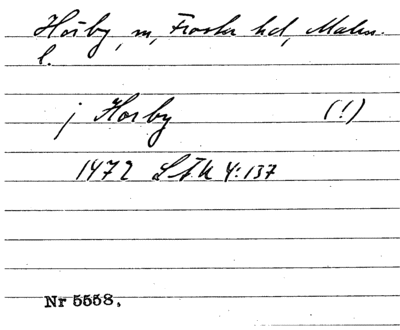 Hörby, sn, Frosta hd, Malm.
l.
j Horby (!)
1472 LÄU 4:137
Nr 5558.